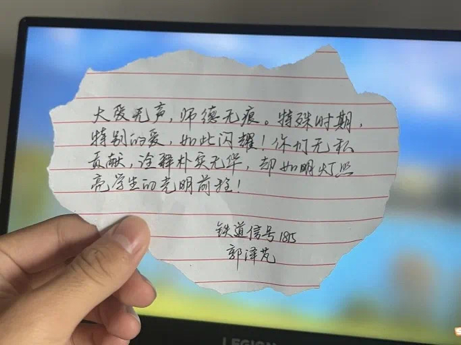 大爱无声,师德无痕。特殊时期,
特别的爱,如此闪耀!你们无私
贡献,诠释朴实无华,却如明灯照
亮学生的光明前程!
铁道信号1815
郭泽芃
LEGION